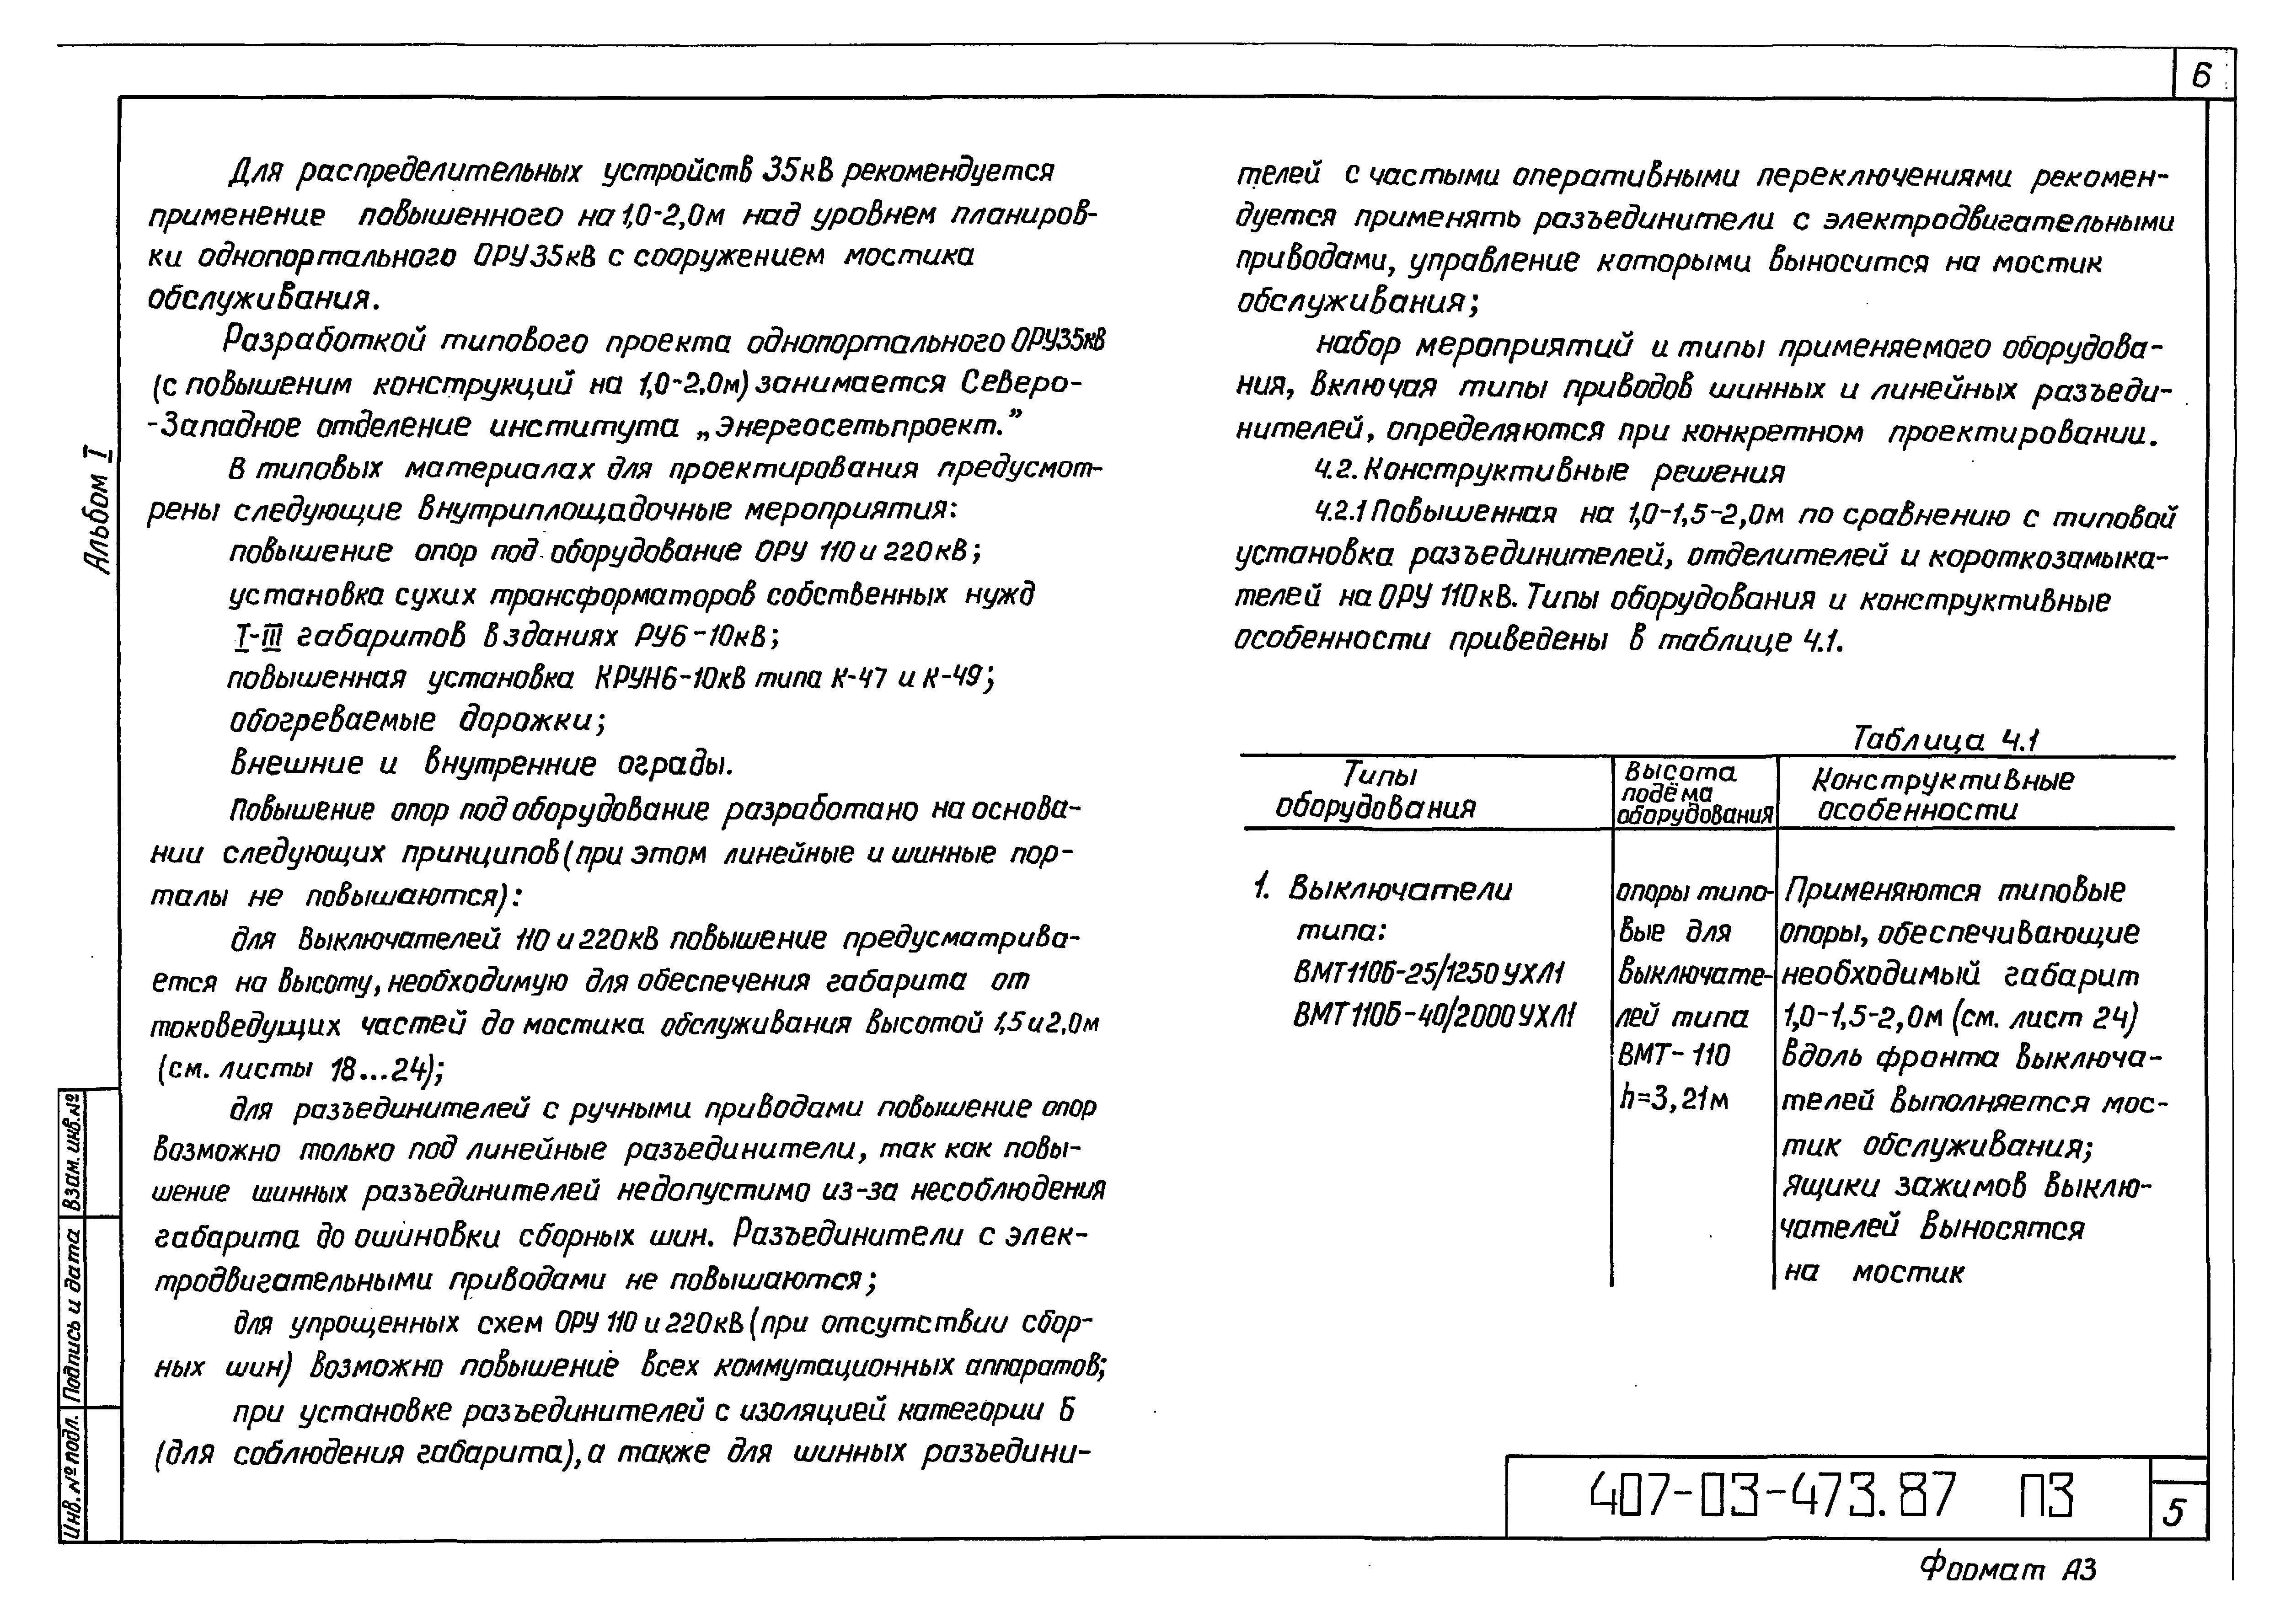 6
Альбом I
Для распределительных устройств 35кВ рекомендуется
применение повышенного на 1,0-2,0м над уровнем планиров-
ки однопортального ОРУ35кВ с сооружением мостика
обслуживания.
Разработкой типового проекта однопортального ОРУ35кВ
(с повышеним конструкций на 1,0-2,0м) занимается Северо-
-Западное отделение института „Энергосетьпроект.”
В типовых материалах для проектирования предусмот-
рены следующие внутриплощадочные мероприятия:
повышение опор под оборудование ОРУ 110 и 220кВ;
установка сухих трансформаторов собственных нужд
I-III габаритов в зданиях РУ6-10кВ;
повышенная установка КРУН6-10кВ типа К-47 и К-49;
обогреваемые дорожки;
внешние и внутренние ограды.
Повышение опор под оборудование разработано на основа-
нии следующих принципов (при этом линейные и шинные пор-
талы не повышаются):
для выключателей 110 и 220кВ повышение предусматрива-
ется на высоту, необходимую для обеспечения габарита от
токоведущих частей до мостика обслуживания высотой 1,5 и 2,0м
(см. листы 18...24);
для разъединителей с ручными приводами повышение опор
возможно только под линейные разъединители, так как повы-
шение шинных разъединителей недопустимо из-за несоблюдения
габарита до ошиновки сборных шин. Разъединители с элек-
тродвигательными приводами не повышаются;
для упрощенных схем ОРУ 110 и 220кВ (при отсутствии сбор-
ных шин) возможно повышение всех коммутационных аппаратов;
при установке разъединителей с изоляцией категории Б
(для соблюдения габарита), а также для шинных разъедини-
телей с частыми оперативными переключениями рекомен-
дуется применять разъединители с электродвигательными
приводами, управление которыми выносится на мостик
обслуживания;
набор мероприятий и типы применяемого оборудова-
ния, включая типы приводов шинных и линейных разъеди-
нителей, определяются при конкретном проектировании.
4.2. Конструктивные решения
4.2.1 Повышенная на 1,0-1,5-2,0м по сравнению с типовой
установка разъединителей, отделителей и короткозамыка-
телей на ОРУ 110кВ. Типы оборудования и конструктивные
особенности приведены в таблице 4.1.
Таблица 4.1
Типы
оборудования
Высота
подёма
оборудования
Конструктивные
особенности
1. Выключатели
типа:
ВМТ110Б-25/1250 УХЛ1
ВМТ110Б-40/2000 УХЛ1
опоры типо-
вые для
выключате-
лей типа
ВМТ-110
h=3,21м
Применяются типовые
опоры, обеспечивающие
необходимый габарит
1,0-1,5-2,0м (см. лист 24)
Вдоль фронта выключа-
телей выполняется мос-
тик обслуживания;
Ящики зажимов выклю-
чателей выносятся
на мостик
Взам. инв.№
Подпись и дата
Инв.№подл.
407-03-473.87 ПЗ
5
Формат А3